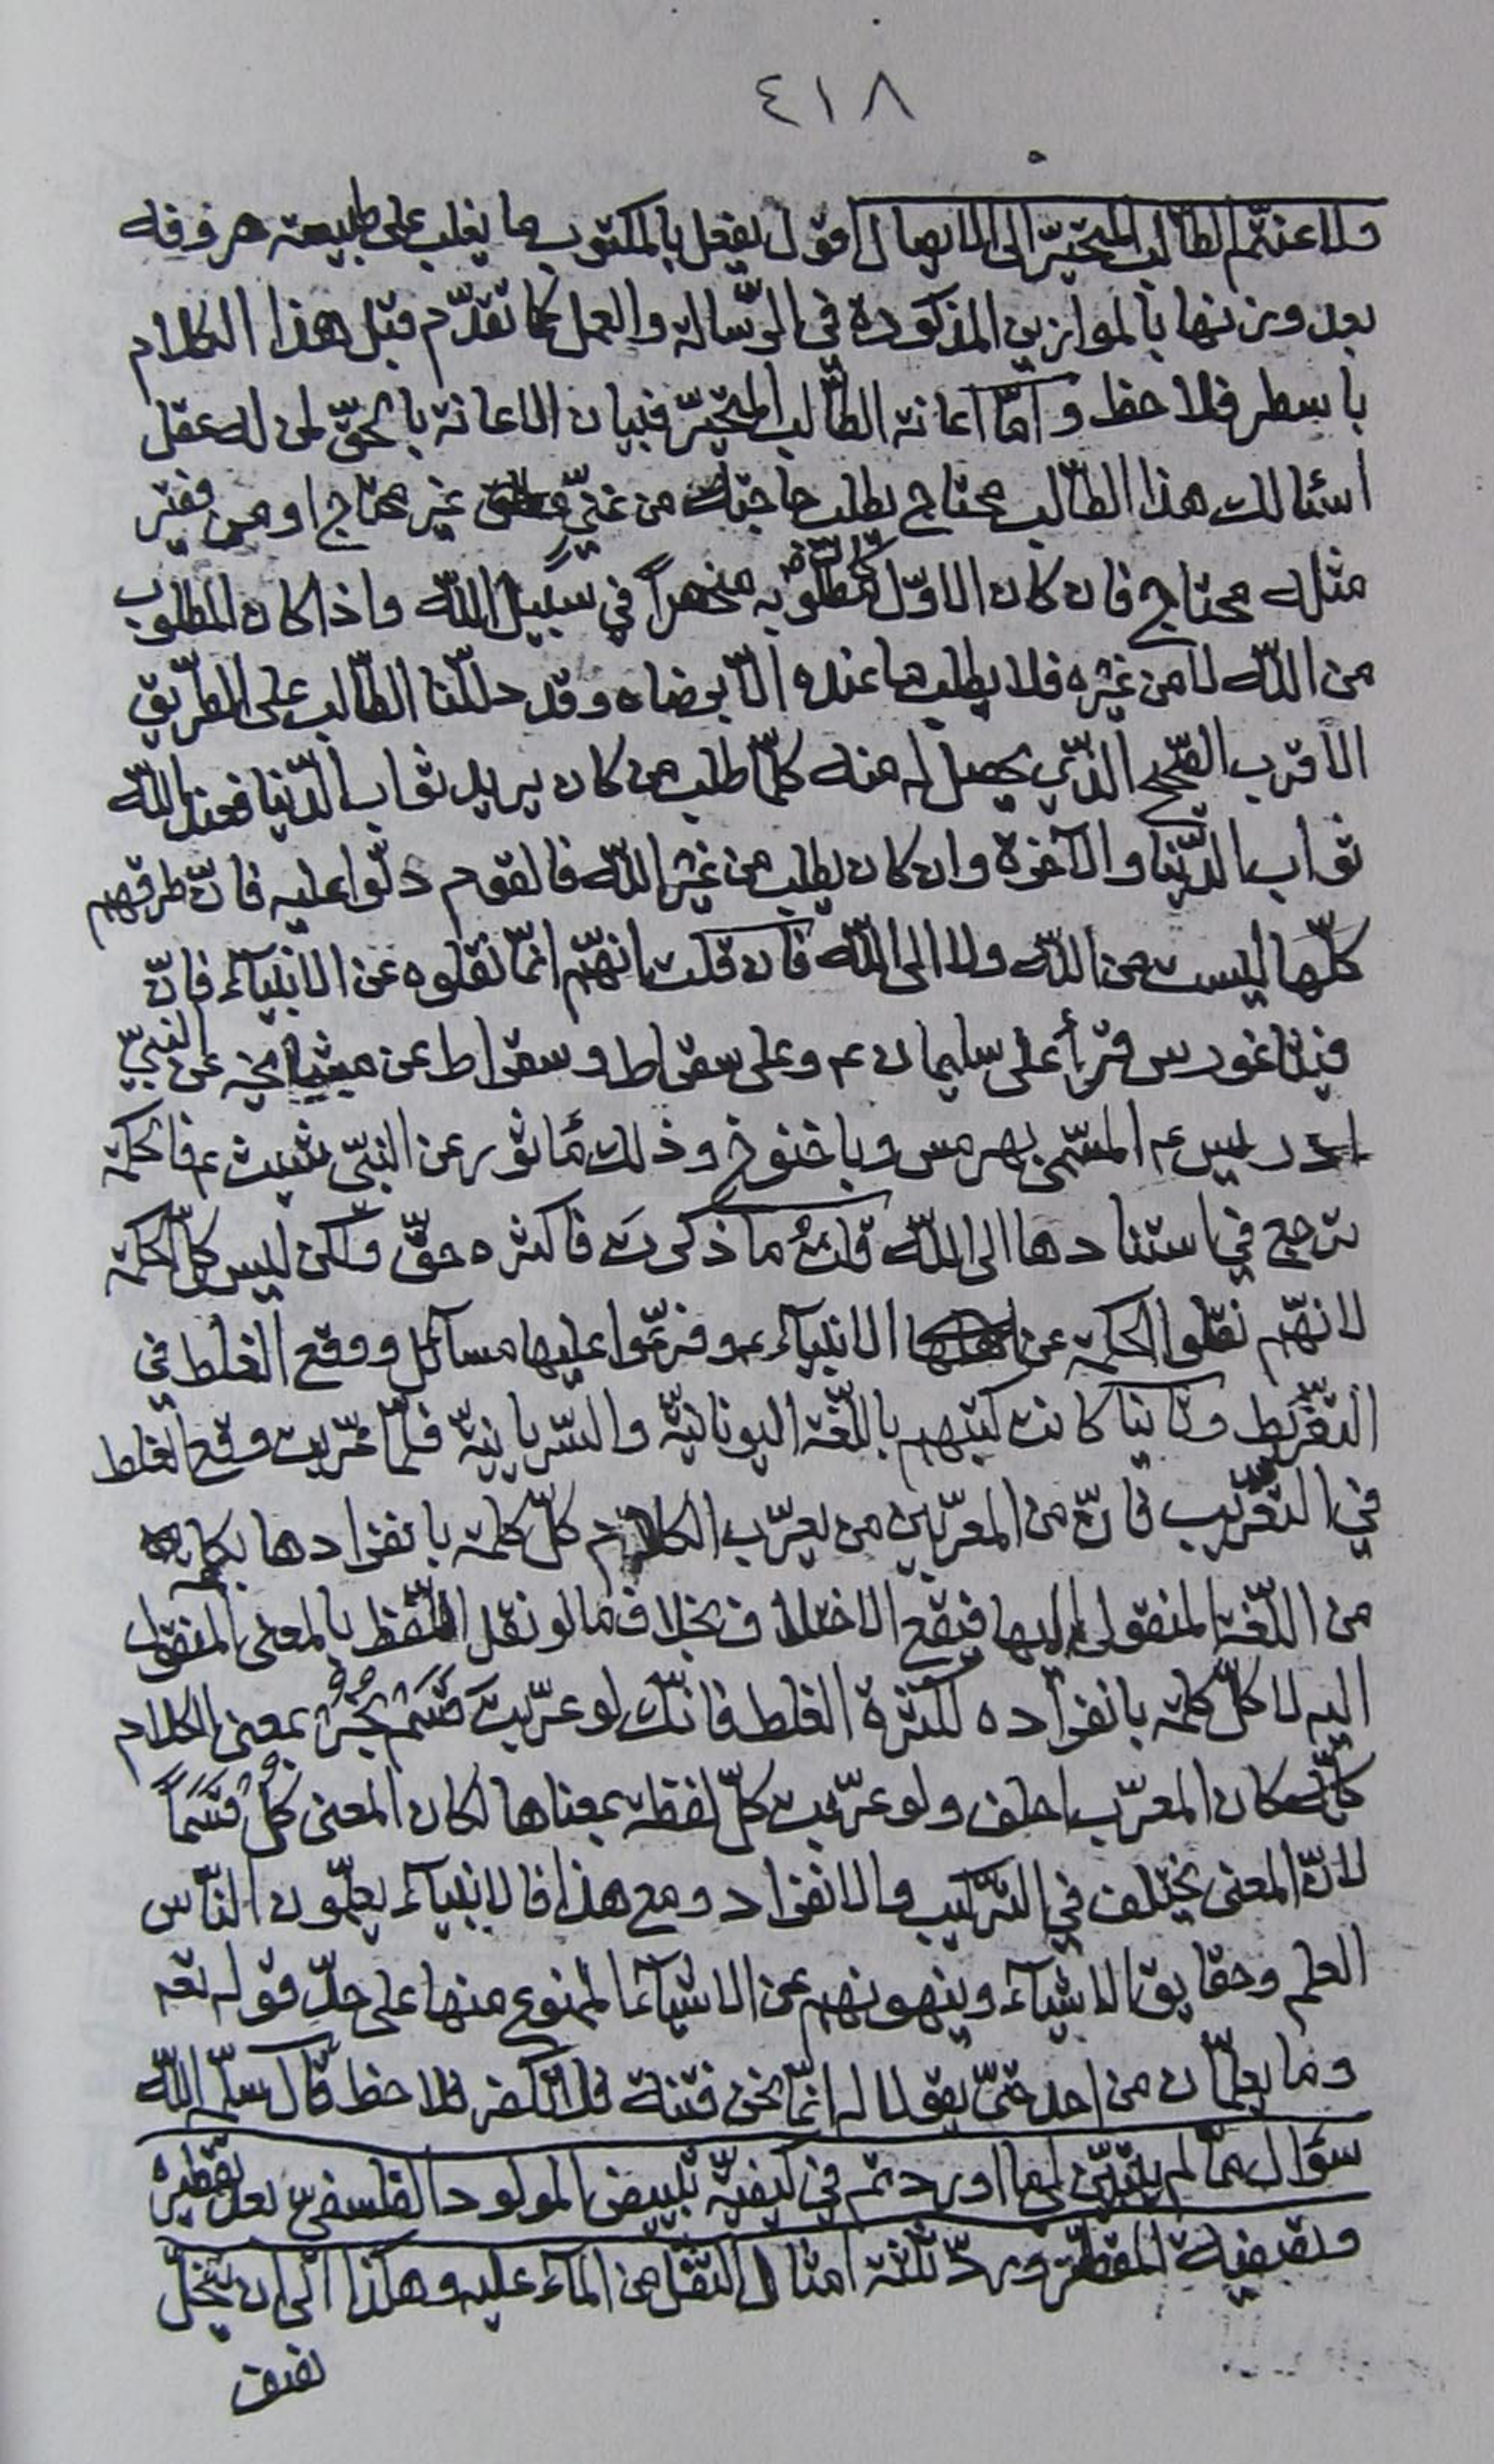 ٤١٨
ولا اعنتم الطالب المتحيّر الى الايصال اقول يفعل بالمكتوب ما يغلب على طبيعة حروفه
بعد وزنها بالموازين المذكورة في الرّسالة والعمل كما تقدّم قبل هذا الكلام
باسطر فلاحظ وامّا اعانة الطّالب المتحيّر فبيان الاعانة بالحقّ لمن له عقل
اسئالك هذا الطّالب محتاج يطلب حاجته من غنيّ غير محتاج او من فقير
مثله محتاج فان كان الاوّل فمطلوبه منحصراً في سبيل اللّه واذا كان المطلوب
من اللّه لا من غيره فلا يطلب ما عنده الّا برضاه وقد دللنا الطّالب على الطّريق
الاقرب الصّحيح الّذي يحصل له منه كلّما طلب من كان يريد ثواب الدّنيا فعند اللّه
ثواب الدّنيا والآخرة وان كان يطلب من غير اللّه فالقوم دلّوا عليه فانّ طرقهم
كلّها ليست من اللّه ولا الى اللّه فان قلت انهّم انمّا نقلوه عن الانبيآء فانّ
فيثاغورس قرأ على سليمان عم وعلى سقراط وسقراط عن مشايخه عن النبيّ
ادريس عم المسمّى بهرمس وباخنوخ وذلك مأثور عن النبيّ شيث عم فالحكمة
ترجع في استنادها الى اللّه قلتُ ما ذكرتَ فاكثره حقّ ولكن ليس كلّ الحكمة
لانهّم نقلوا الحكمة عن الانبيآء عم وفرّعوا عليها مسائل ووقع الغلط في
التفريط وثانيا كانت كتبهم باللّغة اليونانيّة والسّريانيّة فلّما عرّبت وقع الغلط
في التعريب فانّ من المعرّبين من يعرّب الكلام كلّ كلمة بانفرادها بكلمة
من اللّغة المنقول اليها فيقع الاختلاف بخلاف ما لو نقل اللّفظ بالمعنى المنقول
اليه لا كلّ كلمة بانفراده لكثرة الغلط فانّك لو عرّبت قَسَم بُخُرْ بمعنى الكلام
كلّه كان المعرّب احلف ولو عرّبت كلّ لفظة بمعناها لكان المعنى كُلْ قَسَماً
لانّ المعنى يختلف في التّركيب والانفراد ومع هذا فالانبيآء يعلّمون النّاس
العلم وحقايق الاشيآء وينهونهم عن الاشيآء الممنوع منها على حدّ قوله تعه
وما يعلّمان من احد حتّى يقولا له انمّا نحن فتنة فلا تكفر فلاحظ قال سلّمه اللّه
سؤال عمّا لم يتبيّن لي ممّا اوردتم في كيفيّة تبييض المولود الفلسفي بعد تقطيره
وتصفية المقطّر وردّ ثلثة امثال الثّفل من المآء عليه وهكذا الى ان ينحلّ
نصف